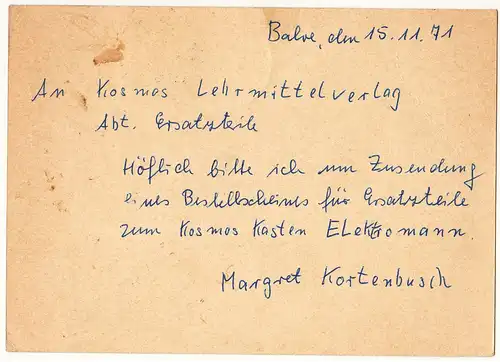 Balve, den 15.11.71
An Kosmos Lehrmittelverlag
Abt. Ersatzteile
Höflich bitte ich um Zusendung
eines Bestellscheines für Ersatzteile
zum Kosmos Kasten Elektromann.
Margret Kortenbusch